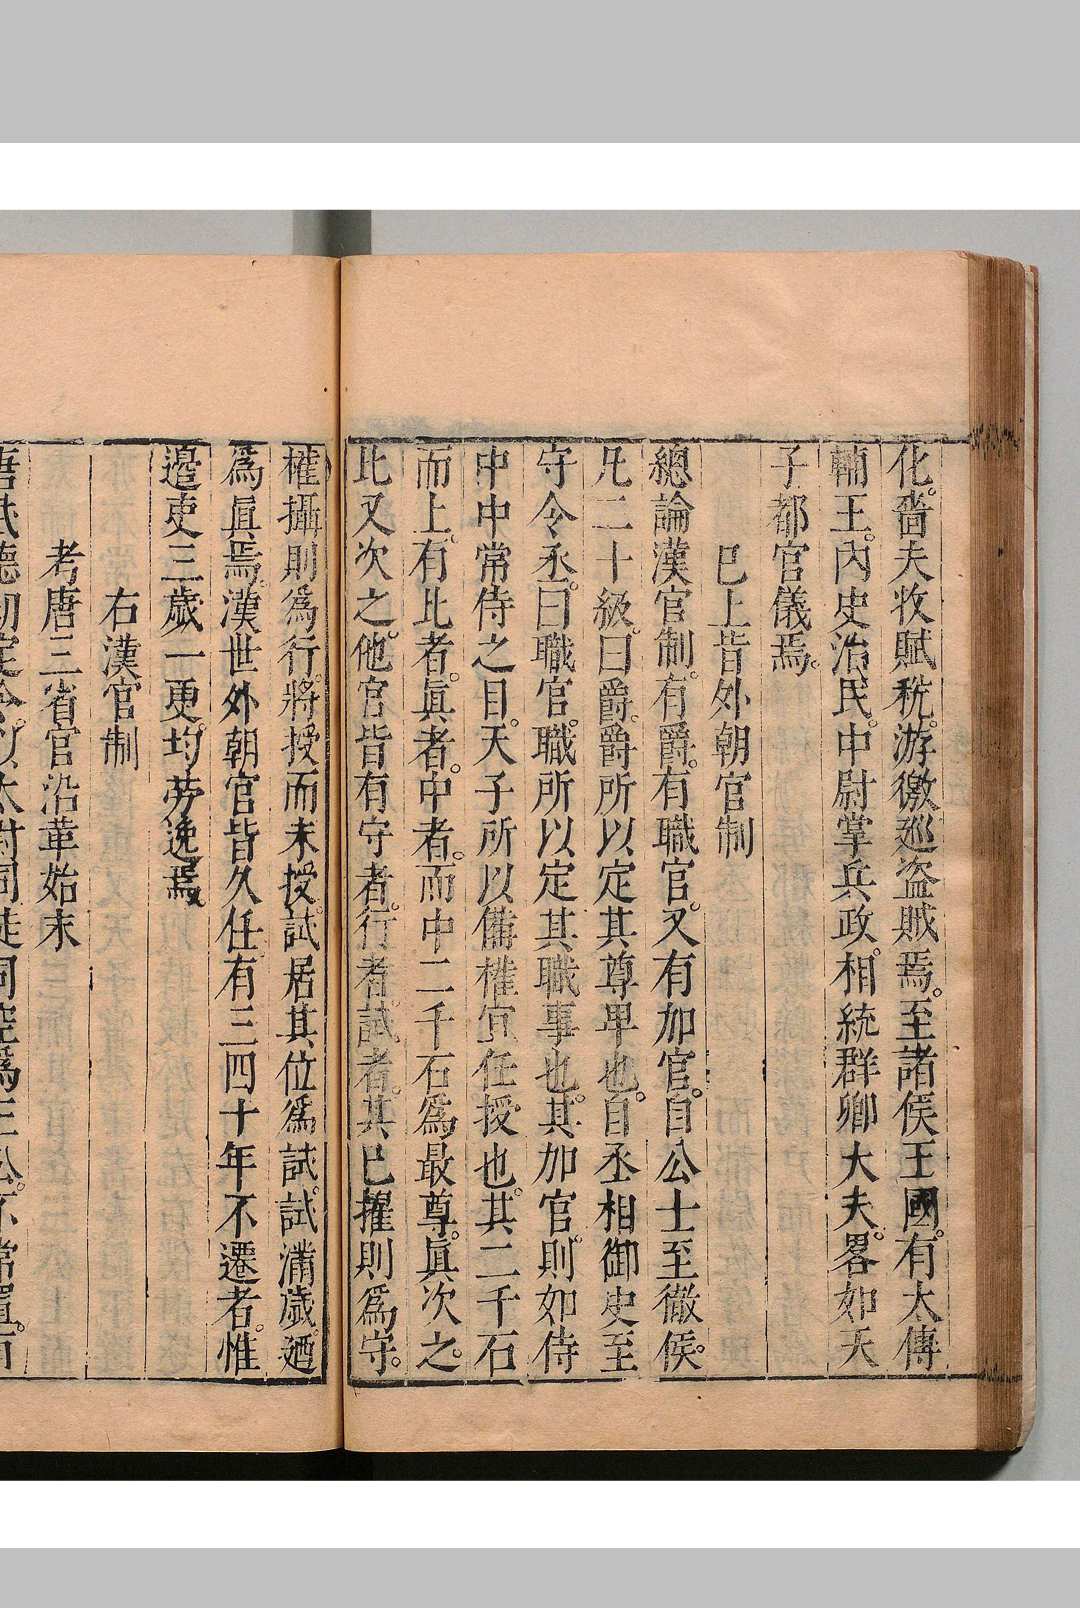 化。嗇夫收賦稅。游徼巡盜賊焉。至諸侯王國。有太傅
輔王。內史治民。中尉掌兵政。相統群卿大夫。畧如天
子都官儀焉。
已上皆外朝官制
總論漢官制。有爵。有職官。又有加官。自公士至徹侯。
凡二十級。曰爵。爵所以定其尊卑也。自丞相御史至
守令丞。曰職官。職所以定其職事也。其加官。則如侍
中中常侍之目。天子所以備權宜任授也。其二千石
而上。有比者。眞者。中者。而中二千石爲最尊。眞次之。
比又次之。他官皆有守者。行者。試者。其已擢則爲守。
權攝則爲行。將授而未授。試居其位爲試。試滿歲。廼
爲眞焉。漢世外朝官皆久任。有三四十年不遷者。惟
邊吏三歲一更。均勞逸焉
右漢官制
考唐三省官沿革始末
唐武德初定令。以太尉司徒司空爲三公。不常置。